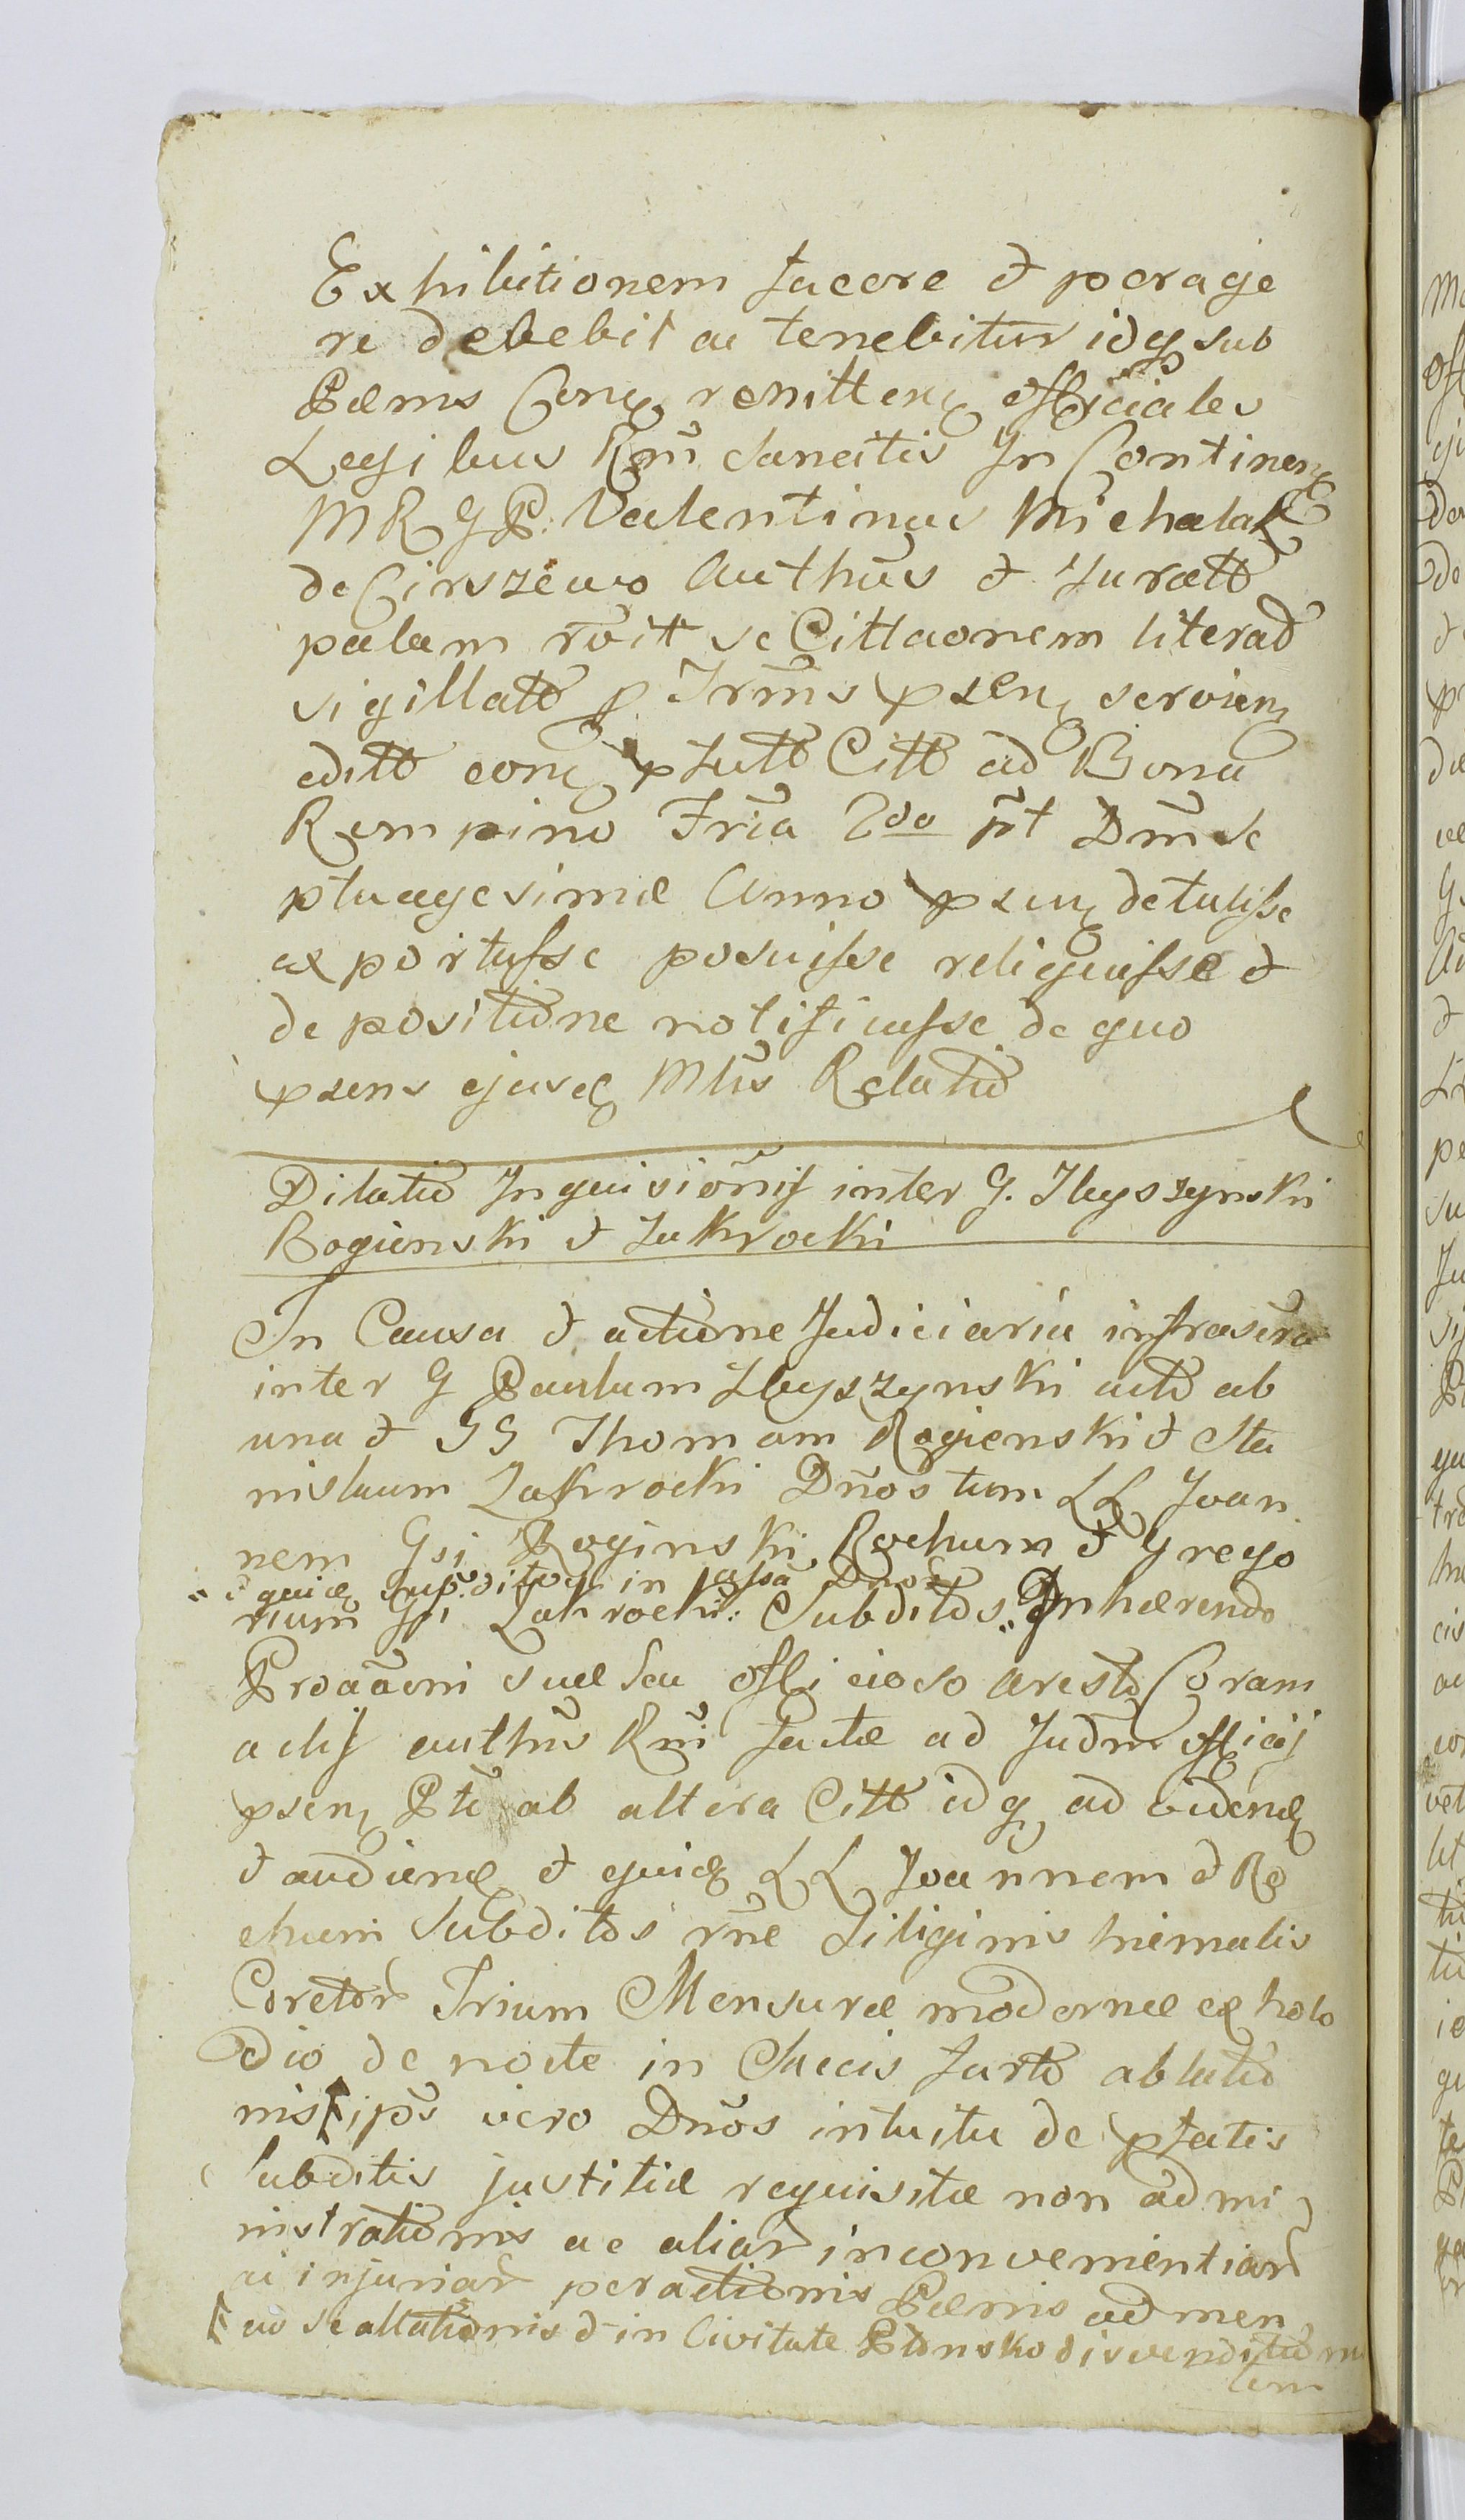 Exhibitionem facere et perage
re debebit ac tenebitur idq sub
Pænis Con remitten officiales
Legibus Rni sancitis In Continen
M R G P. Valentinus Michalak
de Cirszewo Authus et Juratt
palam roit se Cittaonem literad
sigillatt p Irms psen servien
editt con pfatt Citt ad Bona
Rempino Fria 2da pt Dnm Se
ptuagesimæ Anno psen detulisse
exportasse posuisse reliquisse et
de positione notificasse de quo
psens ejusd Mlis Relatio
Dilatio Inquisiōnis inter G. Zbyszynski
Rogienski et Zakrocki
In Causa et actione Judiciaria infrascra
inter G Paulum Zbyszynski actō ab
una et GG Thomam Rogienski et Sta
nislaum Zakrocki Dños tum LL Joan
nem Gsi Roginski Rochum et Grego
rium Gsi Zakrocki: Subditos. Inhærendo
Proaaōni suæ seu officioso aresto Coram
actis authus Rni factæ ad Judm officij
psen Pte ab altera Citt idq ad videnđ
et audienđ et quiđ LL Joannem et Ro
chum Subditos rne Siliginis hiemalis
Coretor Trium Mensuræ modernæ ex holo
dio de nocte in Saccis furto ablatio
nis ipos vero Dños intuitu de pfatis
Subditis justitiæ requisitæ non admi
nistrationis ac aliar inconvenientiar
ac injuriar peractionis Pænis ad men
et in Civitate Płonsko disvenditio
tem